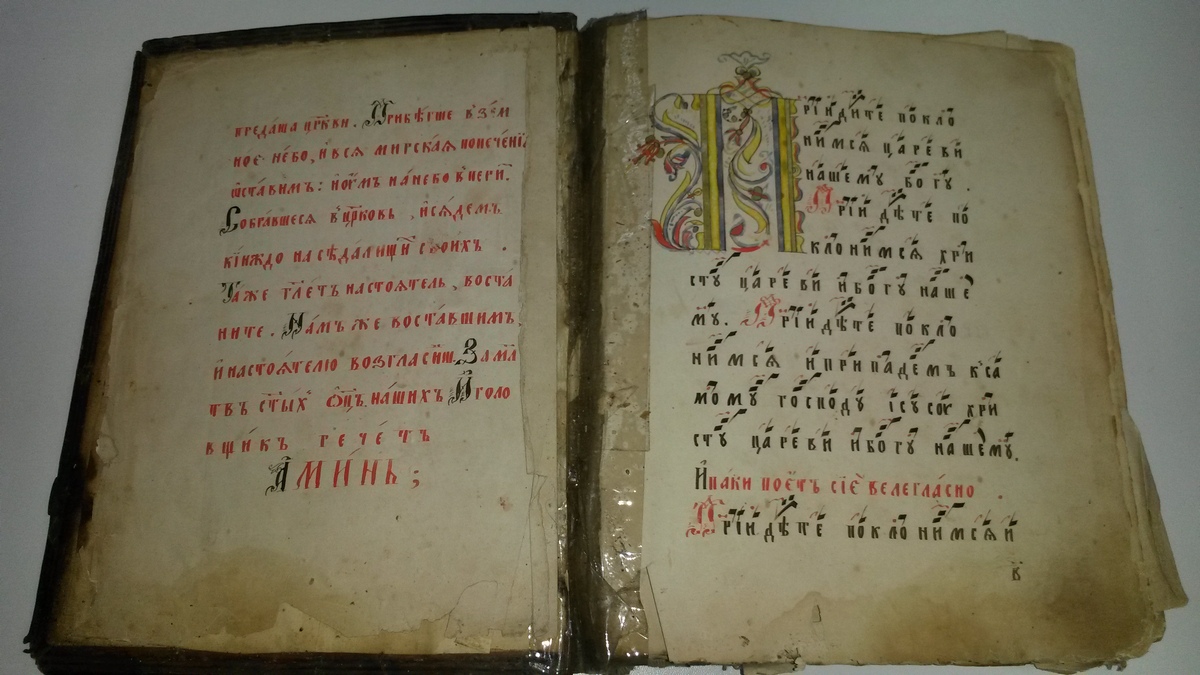 предаша црⷭ҇кви. Прибѣгше в зем
ное небо, и вся мирская попечені
ѿставимъ: и оу҆мъ на небо вперим.
Собравшеся в црⷭ҇ковь, и сядемъ
кійждо на сѣдалищи своихъ.
Таже гл҃етъ настоятель, воста
ните. Намъ же воставшимъ,
и настоятелю возгласи. За мл҃
твъ ст҃ыхъ ѻц҃ъ нашихъ И голо
вщикъ речетъ
Аминь;
Пріидите покло
нимся цареви
нашему богу.
Пріидѣте по
клонимся хри
сту цареви и богу наше
му. Пріидѣте покло
нимся и припадемъ к са
мому господу ісусо хри
сту цареви и богу нашему.
И паки поетъ сіе велегласно
Пріидѣте поклонимся и
в҃